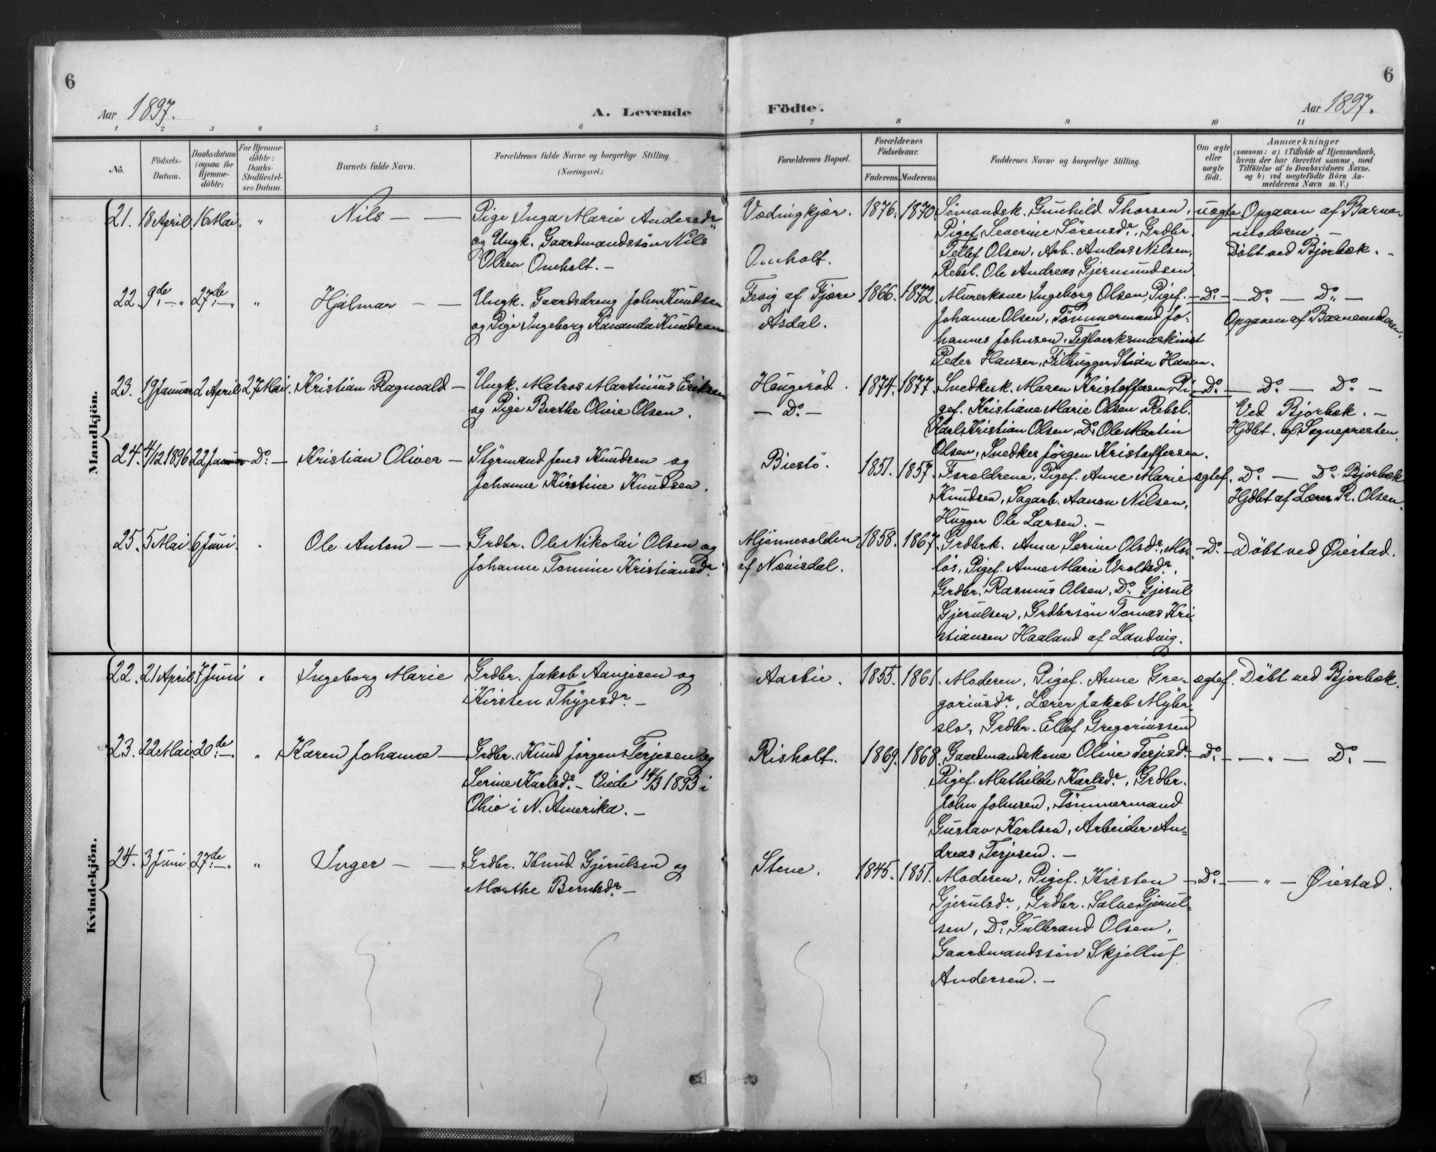 6
6
Aar 1897.
A. Levende
Födte.
Aar 1897.
1 2 3 4 5 6 7 8 9 10 11
No.
Födsels-
Datum.
Daabsdatum
(ogsaa for
Hjemme-
döbte)
For Hjemme-
döbte:
Daabs-
Stadfæstel-
ses Datum.
Barnets fulde Navn.
Forældrenes fulde Navne og borgerlige Stilling
(Næringsvei.)
Forældrenes Bopæl.
Forældrenes
Födselsaar.
Faderens. Moderens.
Faddernes Navne og borgerlige Stilling.
Om ægte
eller
uægte
födt.
Anmærkninger
(saasom: a) i Tilfælde af Hjemmedaab,
hvem der har forrettet samme, med
Tilföielse af to Daabsvidners Navne,
og b) ved uægtefödte Börn An-
melderens Navn m. V.)
Mandkjön.
21. 18 April 16 Mai " Nils — —
Pige Inga Marie Andersdr
og Ungk. Gaardmandssön Nils
Olsen Omholt. —
Vedringkjær.
Omholt.
1876. 1870.
Sömandsk. Gunhild Thorsen,
Pigef. Severine Sörensdr, Grdbr.
Tellef Olsen, Arb. Anders Nilsen,
Rebsl. Ole Andreas Gjermundsen
uægte
Opgaven af Barne-
moderen. —
Döbt ved Bjorbæk. —
22. 9de — " 27de — " Hjalmar —
Ungk. Gaardsdreng John Knudsen
og Pige Ingeborg Knudsen
Fevig af Fjære
Asdal.
1866. 1872.
Murerkone Ingeborg Olsen, Pigef.
Johanne Olsen, Tömmermand Jo-
hannes Johnsen, Teglverksmaskinist
Peder Hansen, Stian Hansen.
— Do —
— Do — Do —
Opgaven af Barnemoderen.
23. 19 Januar 2 April 27 Mai. Kristian Ragnvald —
Ungk. Matros Martinius Eriksen
og Pige Berthe Oline Olsen.
Haugeröd.
— Do —
1874. 1877.
Snedkerk. Maren Kristoffersen, Pi-
gef. Kristiane Marie Olsen Rebsl.
Karl Kristian Olsen, Do Ole Martin
Olsen, Snedker Jörgen Kristoffersen.
— Do —
— Do — Do —
Ved Bjorbæk. —
Hjdbt. af Sognepresten.
24. 4/12 1896 22 Januar — Do — Kristian Oliver —
Styrmand Jens Knudsen og
Johanne Kirstine Knudsen.
Biestö.
1851. 1857.
Forældrene, Pigef. Anne Marie
Knudsen, Sagarb. Aanon Nilsen,
Hugger Ole Larsen. —
ægtef.
Do — Do Bjorbæk
Hjdbt af Lærer R. Olsen.
25. 5 Mai 6 Juni " Ole Anton — —
Grdbr. Ole Nikolai Olsen og
Johanne Tomine Kristiansdr
Mjönnevolden
af Nævisdal.
1858. 1867.
Grdbrk. Anne Serine Olsdr, Mos-
lös, Pigef. Anne Marie Vroldsdr,
Grdbr. Rasmus Olsen, Do Gjerul
Gjerulsen, Grdbrsön Tomas Kri-
stiansen Haaland af Landvig.
— Do —
Döbt ved Öiestad.
Kvindekjön.
22. 21 April 7 Juni " Ingeborg Marie
Grdbr. Jakob Aanjesen og
Kirsten Thygesdr —
Aasbie.
1855. 1861.
Moderen, Pigef. Anne Gre-
goriusdr, Lærer Jakob Myhr-
slo, Grdbr. Ellef Gregoriussen
ægtef.
Döbt ved Bjorbæk.
23. 22 Mai. 20de " Karen Johanne —
Grdbr. Knud Jörgen Terjesen og
Serine Karlsdr — Viede 14/3 1893 i
Ohio i N. Amerika. —
Risholt.
1869. 1868.
Gaardmandskone Oline Terjesdr
Pigef. Mathilde Karlsdr, Grdbr.
John Johnsen, Tömmermand
Gustav Karlsen, Arbeider An-
dreas Terjesen. —
— Do —
— " — Do —
24. 3 Juni 27de — " Inger — —
Grdbr. Knud Gjerulsen og
Marthe Berntsdr —
Stene.
1845. 1851.
Moderen, Pigef. Kirsten
Gjerulsdr, Grdbr. Salve Gjerul-
sen, Do Gulbrand Olsen,
Gaardmandssön Skjelluf
Andersen. —
— Do —
— " — Öiestad.